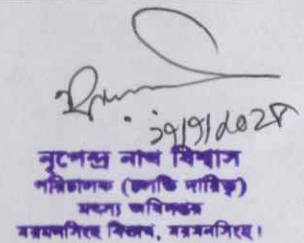 ২৯/৭/২০২৫
নৃপেন্দ্র নাথ বিশ্বাস
পরিচালক (চলতি দায়িত্ব)
মৎস্য অধিদপ্তর
ময়মনসিংহ বিভাগ, ময়মনসিংহ।